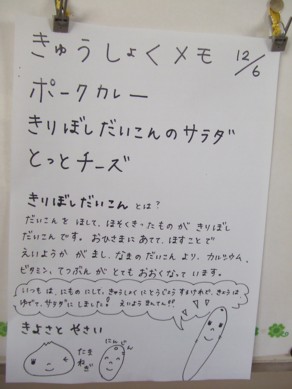 きゅうしょくメモ 12/6
ポークカレー
きりぼしだいこんのサラダ
とっとチーズ
きりぼしだいこん とは?
だいこんを ほして、ほそくきったものが きりぼし
だいこんです。おひさまに あてて、ほすことで
えいようか がまし、なまのだいこん より、カルシウム、
ビタミン、てつぶんが とても おおくなって います。
いつもは、にものにして、きゅうしょくに とうじょう するけれど、きょうは、
ゆでて、サラダにしました!! えいよう まんてん!!
きよさと やさい
たまねぎ
にんじん